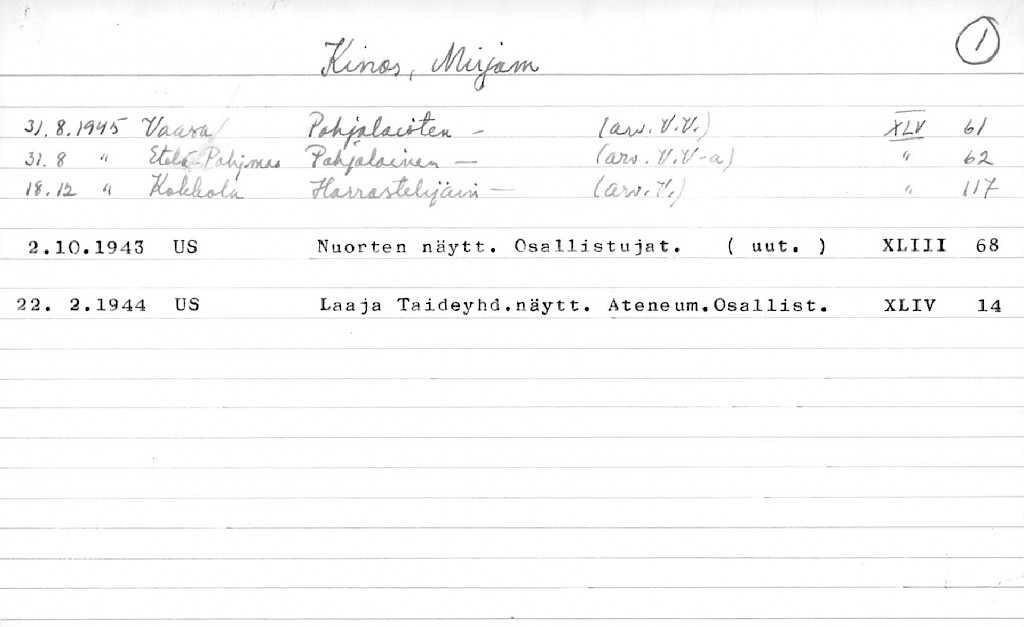 Kinos, Mirjam 1
31.8.1945 Vaasa Pohjalaisten - (arv. V.V.) XLV 61
31.8 " Etelä-Pohjmaa Pohjalainen — (arv. V.V-a) " 62
18.12 " Kokkola Harrastelijain — (arv. V.) " 117
2.10.1943 US Nuorten näytt. Osallistujat. ( uut. ) XLIII 68
22. 2.1944 US Laaja Taideyhd.näytt. Ateneum.Osallist. XLIV 14